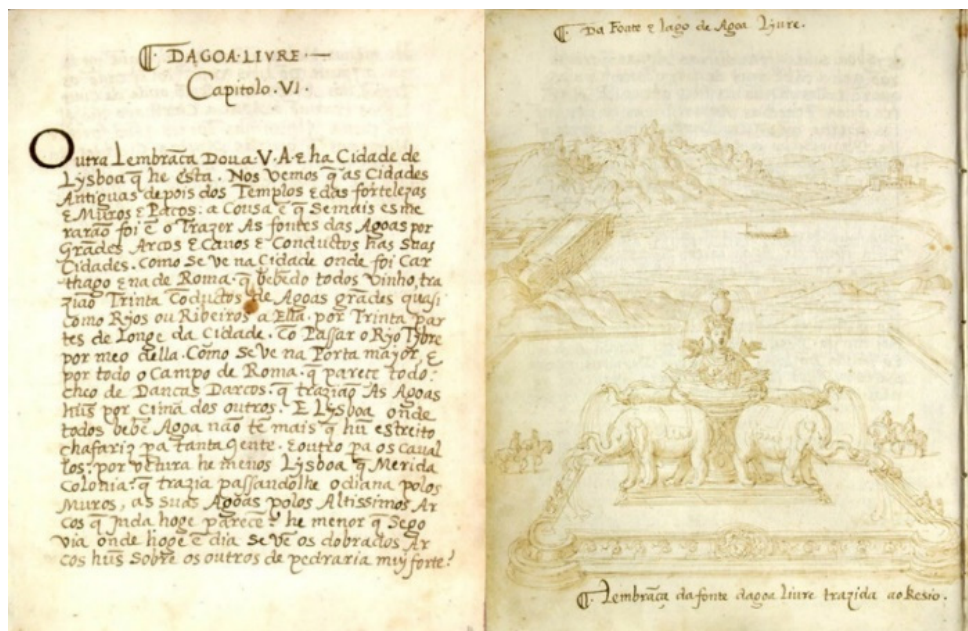 ¶. DAGOA·LIVRE·
Capitolo·VI·
Outra Lembrãça Dou a·V·A· E ha Cidade de
Lysboa q̃ he esta. Nos vemos q̃ as Cidades
Antiguas depois dos Templos E das fortelezas
E Muros E Paços: a Cousa ẽ q̃ Se mais esme
rarão foi ẽ o Trazer As fontes das Agoas por
Grãdes Arcos E Canos E Conductos has Suas
Cidades. Como Se ve na Cidade onde foi Car
thago E na de Roma· q̃ bebẽdo todos vinho, tra
zião Trinta Cõductos de Agoas grãdes quasi
como Ryos ou Ribeiros a Ella· por Trinta par
tes de Longe da Cidade. Cõ Passar o Ryo Tybre
por meo della· Cõmo Se ve na Porta mayor, E
por todo o Campo de Roma· q̃ parece todo
cheo de Dancas Darcos· q̃ trazião As Agoas
hũs por cima dos outros. E Lysboa onde
todos bebẽ Agoa não tẽ mais q̃ hũ estreito
chafariz pa tanta gente· E outro pa os caval
los: por vẽtura he menos Lysboa q̃ Merida
Colonia: q̃ trazia passandolhe odiana polos
Muros, as Suas Agoas polos Altissimos Ar
cos q̃ Inda hoge parecẽ? he menor q̃ Sego
via onde hoge ẽ dia se vẽ os dobrados Ar
cos hũs Sobre os outros de pedraria muy forte?
¶. Da Fonte E lago de Agoa Livre.
¶. Lembrãça da fonte dagoa Livre trazida ao Resio.